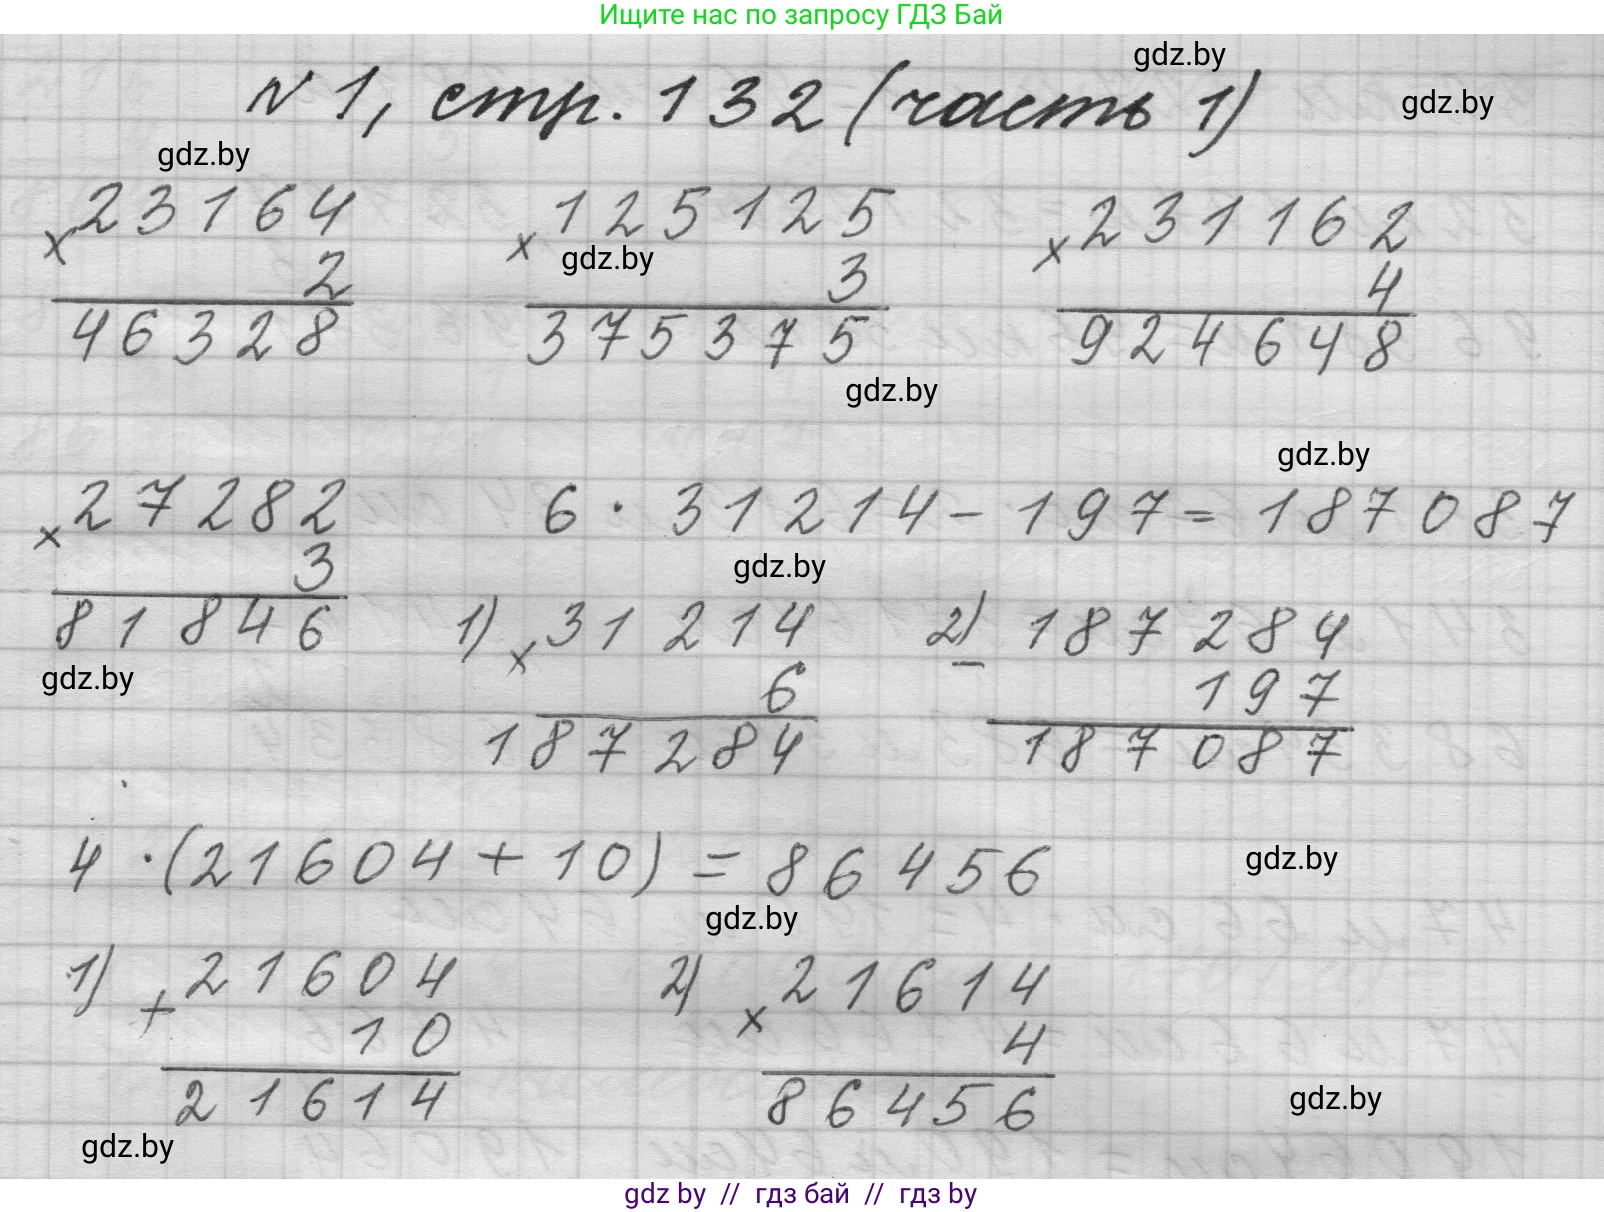 Ищите нас по запросу ГДЗ Бай
gdz.by
№ 1, стр. 132 (часть 1)
gdz.by
gdz.by
× 23164
2
46328
× 125125
gdz.by
3
375375
× 231162
4
924648
gdz.by
gdz.by
× 27282
3
81846
gdz.by
6 · 31214 - 197 = 187087
gdz.by
1) × 31214
6
187284
2) - 187284
197
187087
4 · (21604 + 10) = 86456
gdz.by
gdz.by
1) + 21604
10
21614
2) × 21614
4
86456
gdz.by
gdz.by
gdz by // гдз бай // гдз by